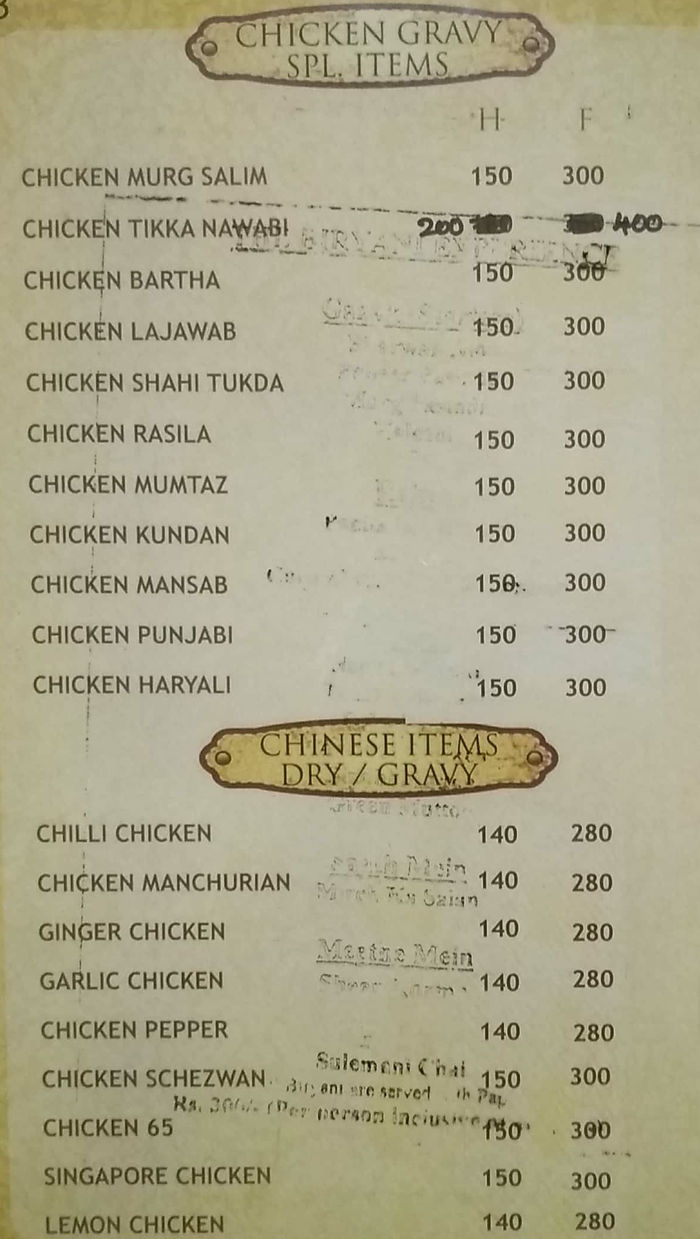 CHICKEN GRAVY
SPL. ITEMS
H F
CHICKEN MURG SALIM 150 300
CHICKEN TIKKA NAWABI 200 400
BIRYANI EXPERIENCE
CHICKEN BARTHA 150 300
CHICKEN LAJAWAB 150 300
CHICKEN SHAHI TUKDA 150 300
CHICKEN RASILA 150 300
CHICKEN MUMTAZ 150 300
CHICKEN KUNDAN 150 300
CHICKEN MANSAB 150 300
CHICKEN PUNJABI 150 300
CHICKEN HARYALI 150 300
CHINESE ITEMS
DRY / GRAVY
CHILLI CHICKEN 140 280
Mein
CHICKEN MANCHURIAN 140 280
GINGER CHICKEN 140 280
Mein
GARLIC CHICKEN 140 280
CHICKEN PEPPER 140 280
Sulemani Chai
CHICKEN SCHEZWAN 150 300
are served
Rs. (Per person inclusive
CHICKEN 65 150 300
SINGAPORE CHICKEN 150 300
LEMON CHICKEN 140 280